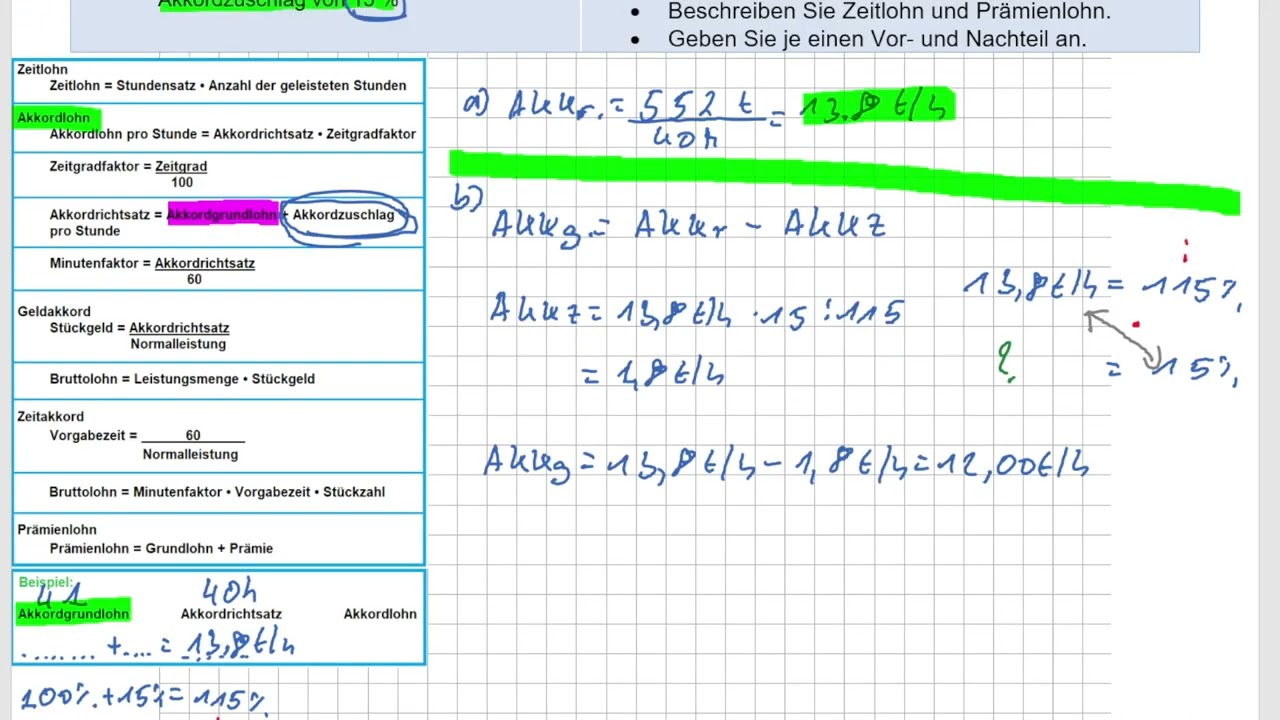 Akkordzuschlag von 15 %
• Beschreiben Sie Zeitlohn und Prämienlohn.
• Geben Sie je einen Vor- und Nachteil an.
Zeitlohn
Zeitlohn = Stundensatz • Anzahl der geleisteten Stunden
Akkordlohn
Akkordlohn pro Stunde = Akkordrichtsatz • Zeitgradfaktor
Zeitgradfaktor = Zeitgrad
100
Akkordrichtsatz = Akkordgrundlohn + Akkordzuschlag
pro Stunde
Minutenfaktor = Akkordrichtsatz
60
Geldakkord
Stückgeld = Akkordrichtsatz
Normalleistung
Bruttolohn = Leistungsmenge • Stückgeld
Zeitakkord
Vorgabezeit = 60
Normalleistung
Bruttolohn = Minutenfaktor • Vorgabezeit • Stückzahl
Prämienlohn
Prämienlohn = Grundlohn + Prämie
Beispiel:
40h
Akkordgrundlohn Akkordrichtsatz Akkordlohn
........ +.... = 13,8€/h
100%+15%=115%
a) Akkr. = 552 € = 13,8€/h
40h
b)
Akkg = Akkr - Akkz
Akkz = 13,8€/h · 15 : 115
= 1,8€/h
Akkg = 13,8€/h - 1,8€/h = 12,00€/h
:
13,8€/h = 115%
·
? = 15%